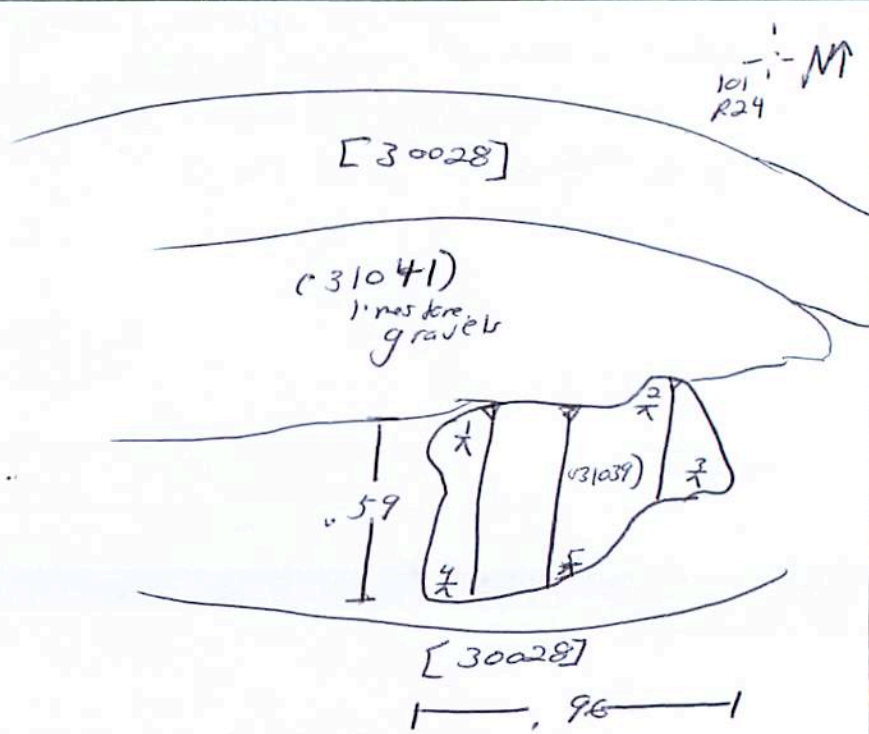 N
101
R24
[30028]
(31041)
limestone
gravels
1
2
(31039)
3
.59
4
5
[30028]
.96